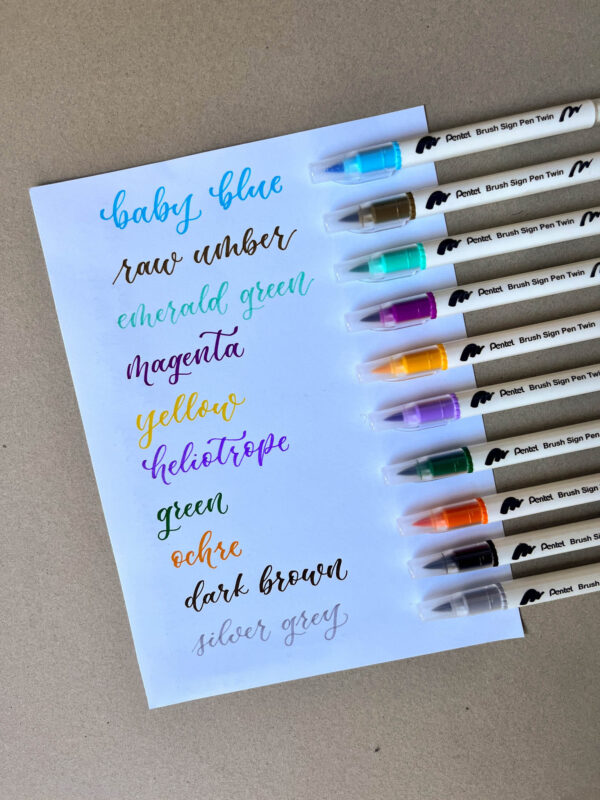 baby blue
raw umber
emerald green
magenta
yellow
heliotrope
green
ochre
dark brown
silver grey
Pentel Brush Sign Pen Twin
Pentel Brush Sign Pen Twin
Pentel Brush Sign Pen Twin
Pentel Brush Sign Pen Twin
Pentel Brush Sign Pen Twin
Pentel Brush Sign Pen Twin
Pentel Brush Sign Pen
Pentel Brush Sign
Pentel Brush
Pentel Brush